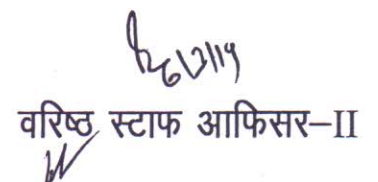 वरिष्ठ स्टाफ आफिसर–II